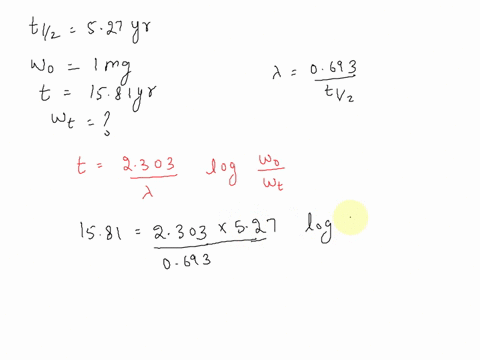 t1/2 = 5.27 yr
w0 = 1 mg
t = 15.81 yr
wt = ?
λ = 0.693 / t1/2
t = 2.303 / λ log w0 / wt
15.81 = 2.303 × 5.27 / 0.693 log